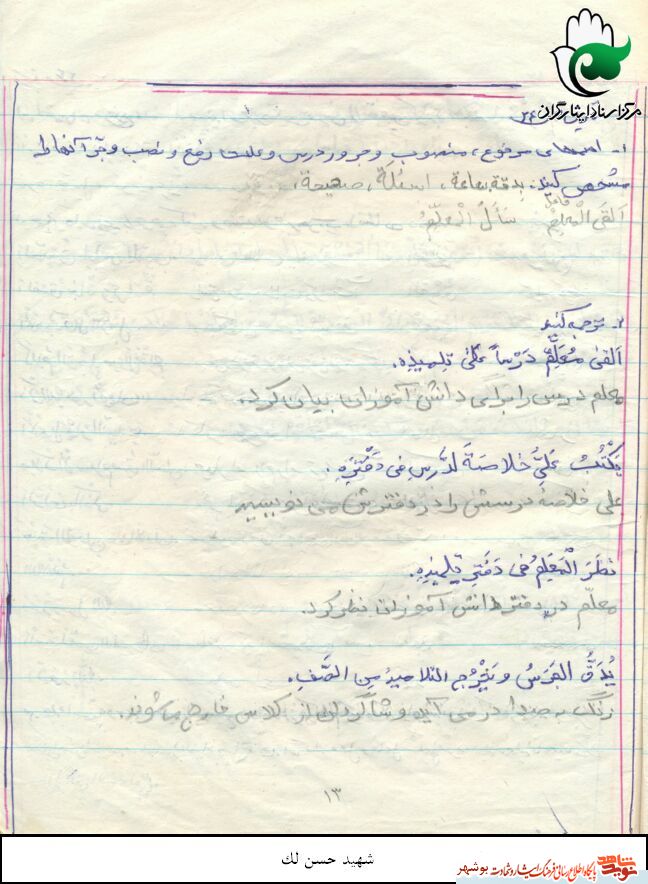 مرکز اسناد ایثارگران
۱- اسمهای مرفوع، منصوب و مجرور درس و علت رفع و نصب و جر آنها را
مشخص کنید. بدقة، ساعة، اسئلة، صحیحة،
فاعل
اَلقَی الْمُعَلِمُ سَأَلَ الْمُعَلِّمُ
۲- ترجمه کنید
اَلقی مُعَلِّمُ دَرْساً عَلَی تِلمیذِهِ.
معلم درس را برای دانش آموزان بیان کرد.
یَکْتُبُ عَلِیٌّ خُلاصَةَ لدَّرسِ فی دَفْتَرِهِ.
علی خلاصهٔ درسش را در دفترش می نویسد
نَظَرَ الْمُعَلِمُ فی دَفتَرِ تِلمیذِهِ.
معلّم در دفتر دانش آموزان نظر کرد.
یُدَقُّ الجَرَسُ و یَخْرُجُ التلامیذُ مِن الصَّفِ.
زنگ به صدا در می آید و شاگردان از کلاس خارج می شوند.
۱۳
شهید حسن لك
نوید شاهد
پایگاه اطلاع رسانی فرهنگ ایثار و شهادت بوشهر